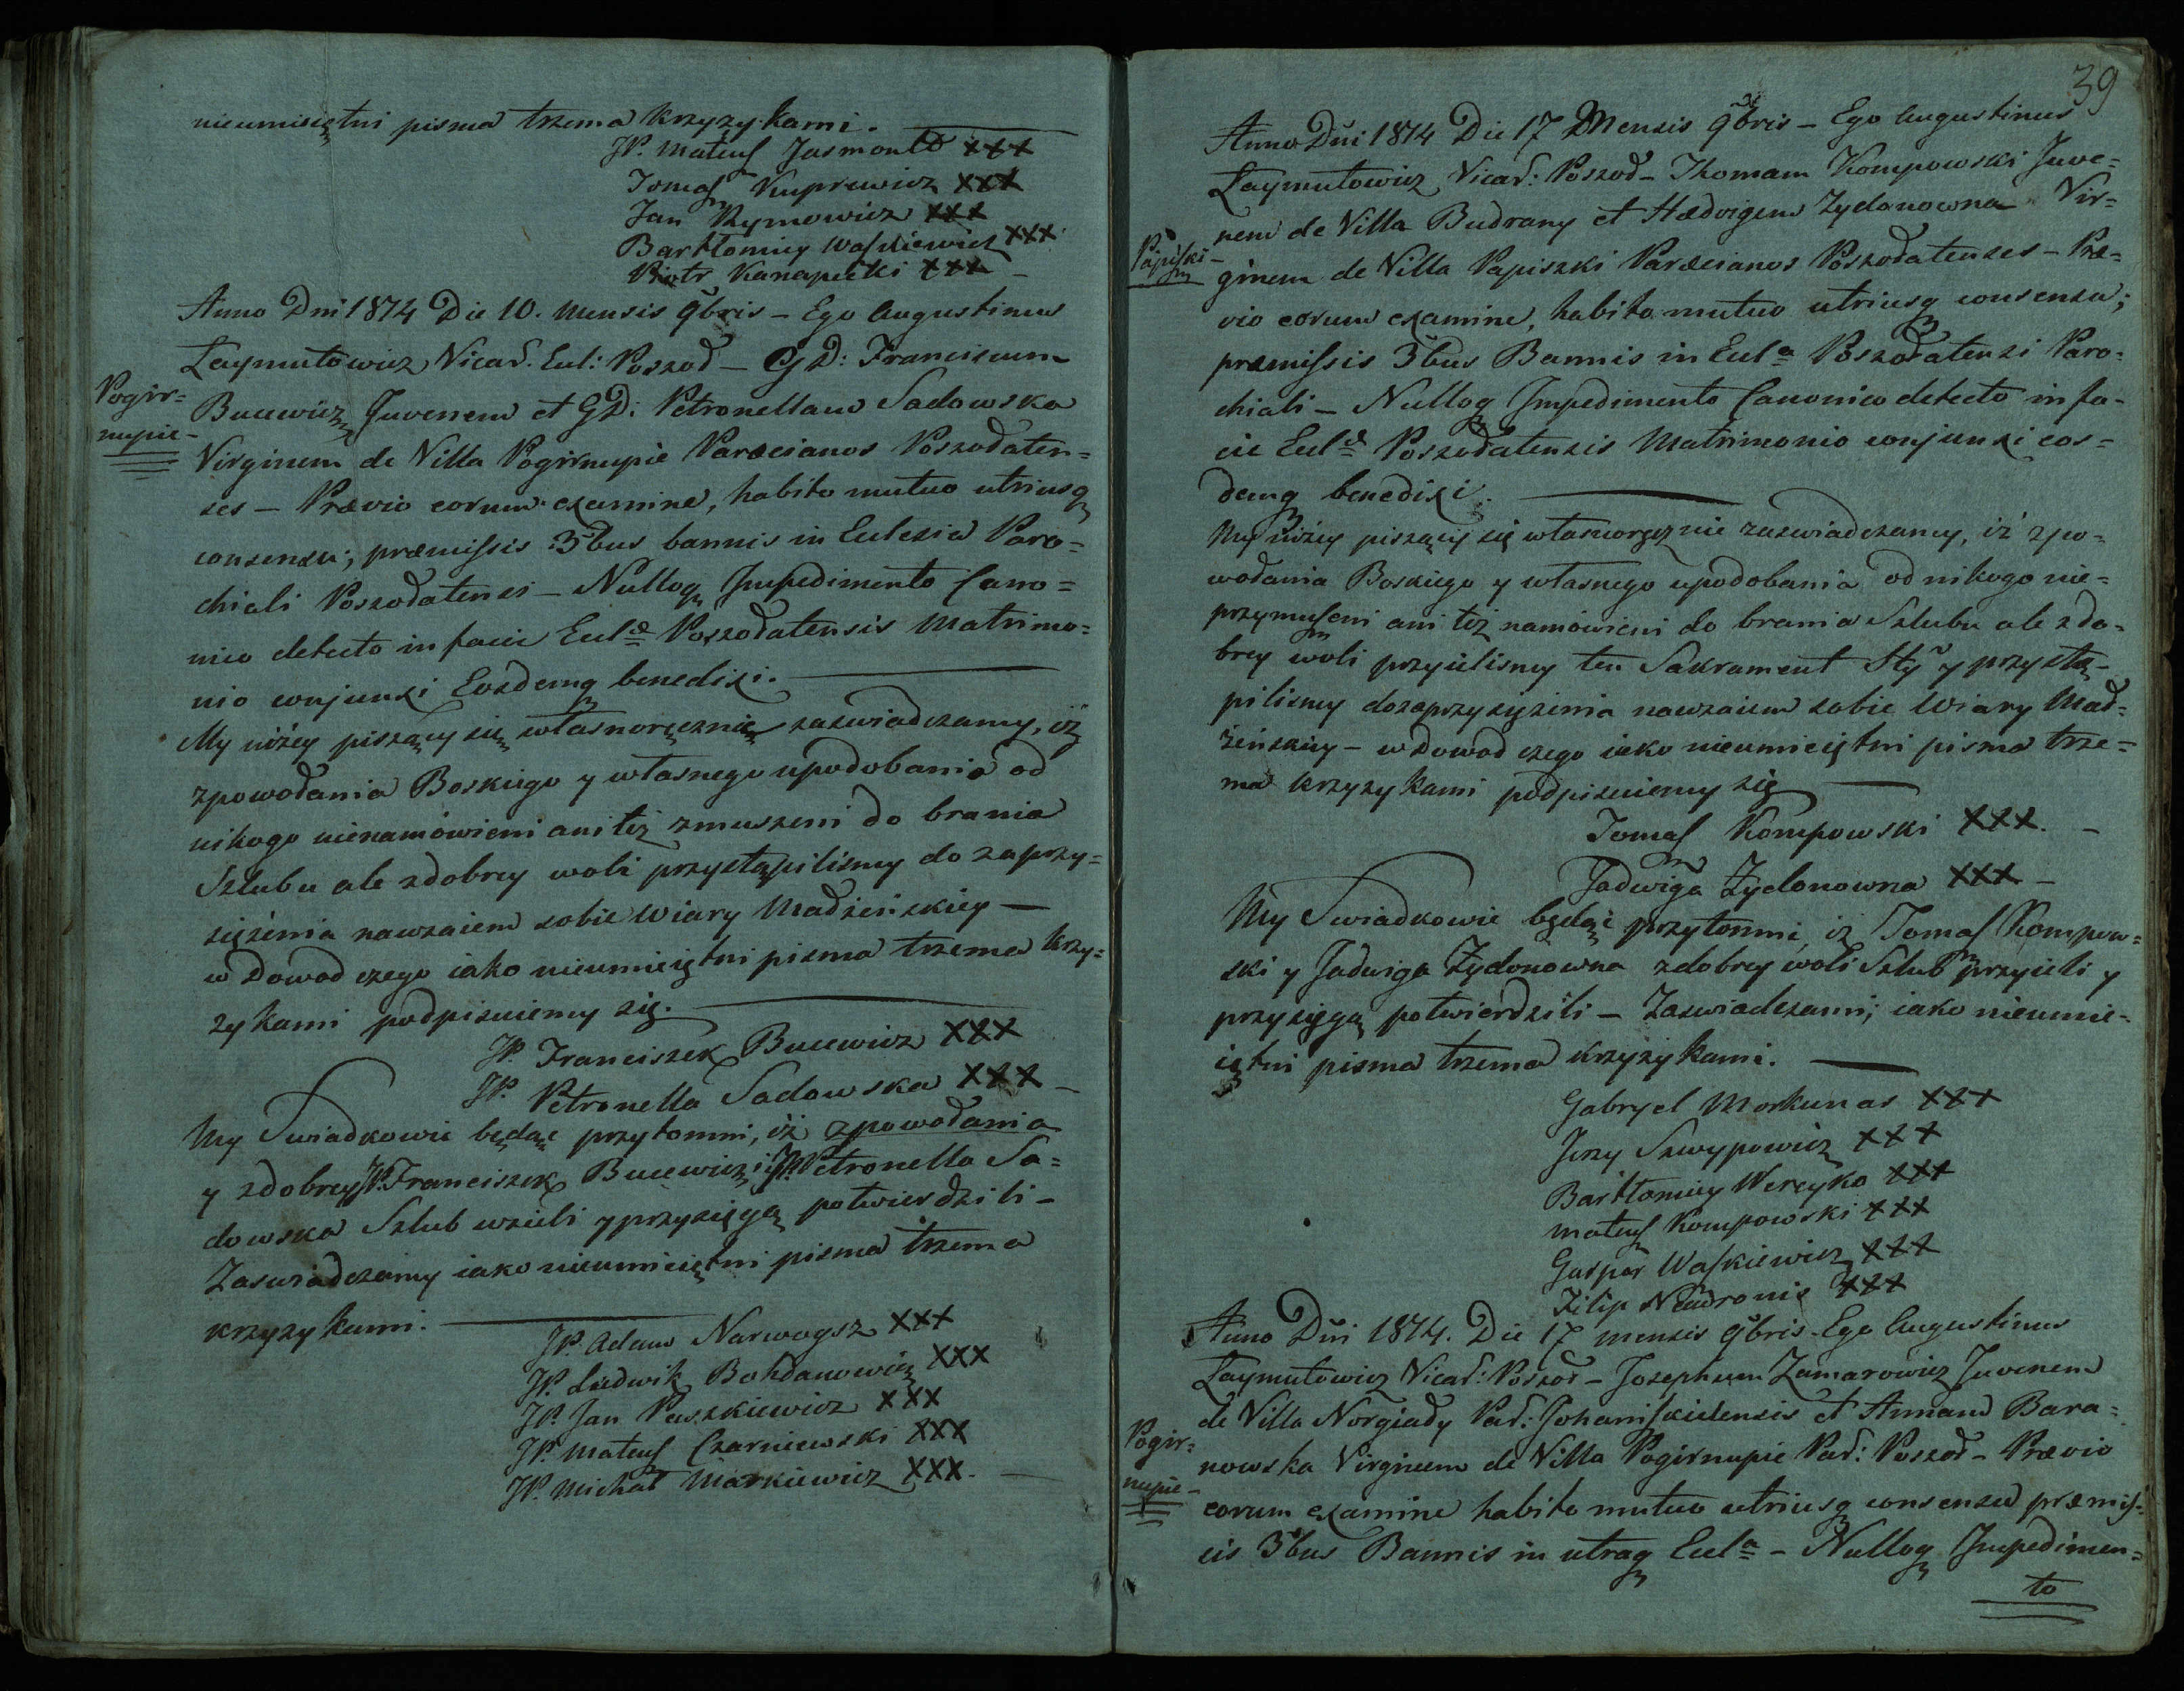 nieumieiętni pisma trzema krzyzykami.
JP. Mateusz Jasmontt XXX
Tomasz Kuprewicz XXX
Jan Rymowicz XXX
Bartłomiey Waszkiewicz XXX
Piotr Kanapecki XXX
Anno Dni 1814 Die 10. Mensis 9bris – Ego Augustinus
Laymutowicz Vicar. Eccl: Poszod – GD: Franciscum
Pogir=
nupie
Bucewicz Juvenem et GD: Petronellam Sadowska
Virginem de Villa Pogirnupie Paræcianos Poszodaten=
ses – Prævio eorum examine, habito mutuo utriusq
consensu; præmissis 3bus bannis in Ecclesia Paro=
chiali Poszodatensi – Nulloq Impedimento Cano=
nico detecto in facie Eccl=æ Poszodatensis Matrimo=
nio conjunxi Eosdemq benedixi.
My niżey piszący się własnoręcznie zaswiadczamy, iż
zpowodania Boskiego y własnego upodobania od
nikogo nienamówieni ani też zmuszeni do brania
Szlubu ale zdobrey woli przystąpilismy do zaprzy=
siężenia nawzaiem sobie Wiary Madżeńskiey –
w Dowod czego iako nieumieiętni pisma trzema krzy=
zykami podpisuiemy się.
JP. Franciszek Bucewicz XXX
JP. Petronella Sadowska XXX –
My Swiadkowie będąc przytomni, iż zpowodania
y zdobrey JP. Franciszek Bucewicz i JP. Petronella Sa=
dowska Szlub wzieli y przysięgą potwierdzili –
Zaswiadczamy iako nieumieiętni pisma trzema
krzyzykami.
JP. Adam Narwoysz XXX
JP. Ludwik Bohdanowicz XXX
JP. Jan Paszkiewicz XXX
JP. Mateusz Czarniewski XXX
JP. Michał Markiewicz XXX. –
39
Anno Dni 1814 Die 17 Mensis 9bris – Ego Augustinus
Laymutowicz Vicar: Poszod – Thomam Kompowski Juve=
nem de Villa Budrany et Hædvigem Zydonowna Vir=
Papiszki –
ginem de Villa Papiszki Paræcianos Poszodatenses – Præ=
vio eorum examine, habito mutuo utriusq consensu;
præmissis 3bus Bannis in Eccl=a Poszodatensi Paro=
chiali – Nulloq Impedimento Canonico detecto in fa=
cie Eccl=æ Poszodatensis Matrimonio conjunxi eos=
demq benedixi.
My niżey piszący się własnoręcznie zaswiadczamy, iż zpo=
wodania Boskiego y własnego upodobania od nikogo nie=
przymuszeni ani też namówieni do brania Szlubu ale zdo=
brey woli przyielismy ten Sakrament Sty y przystą=
pilismy dozaprzysiężenia nawzaiem sobie Wiary Mad=
żeńskiey – w Dowod czego iako nieumieiętni pisma trze=
ma krzyzykami podpisuiemy się
Tomasz Kompowski XXX. –
Jadwiga Zydonowna XXX –
My Swiadkowie będąc przytomni iż Tomasz Kompow=
ski y Jadwiga Zydonowna zdobrey woli Szlub przyieli y
przysięgą potwierdzili – Zaswiadczami; iako nieumie=
iętni pisma trzema krzyżykami.
Gabryel Morkunas XXX
Jerzy Szwypowicz XXX
Bartłomiey Wereyko XXX
Mateusz Kompowski XXX
Gasper Waszkiewicz XXX
Filip XXX
Anno Dni 1814. Die 17 mensis 9bris. Ego Augustinus
Laymutowicz Vicar: Poszod – Josephum Zamarowicz Juvenem
de Villa Norgiady Par: Johaniszkielensis et Annam Bara=
Pogir=
nupie –
nowska Virginem de Villa Pogirnupie Par: Poszod – Prævio
eorum examine habito mutuo utriusq consensu præmis=
sis 3bus Bannis in utraq Eccl=a – Nulloq Impedimen=
to